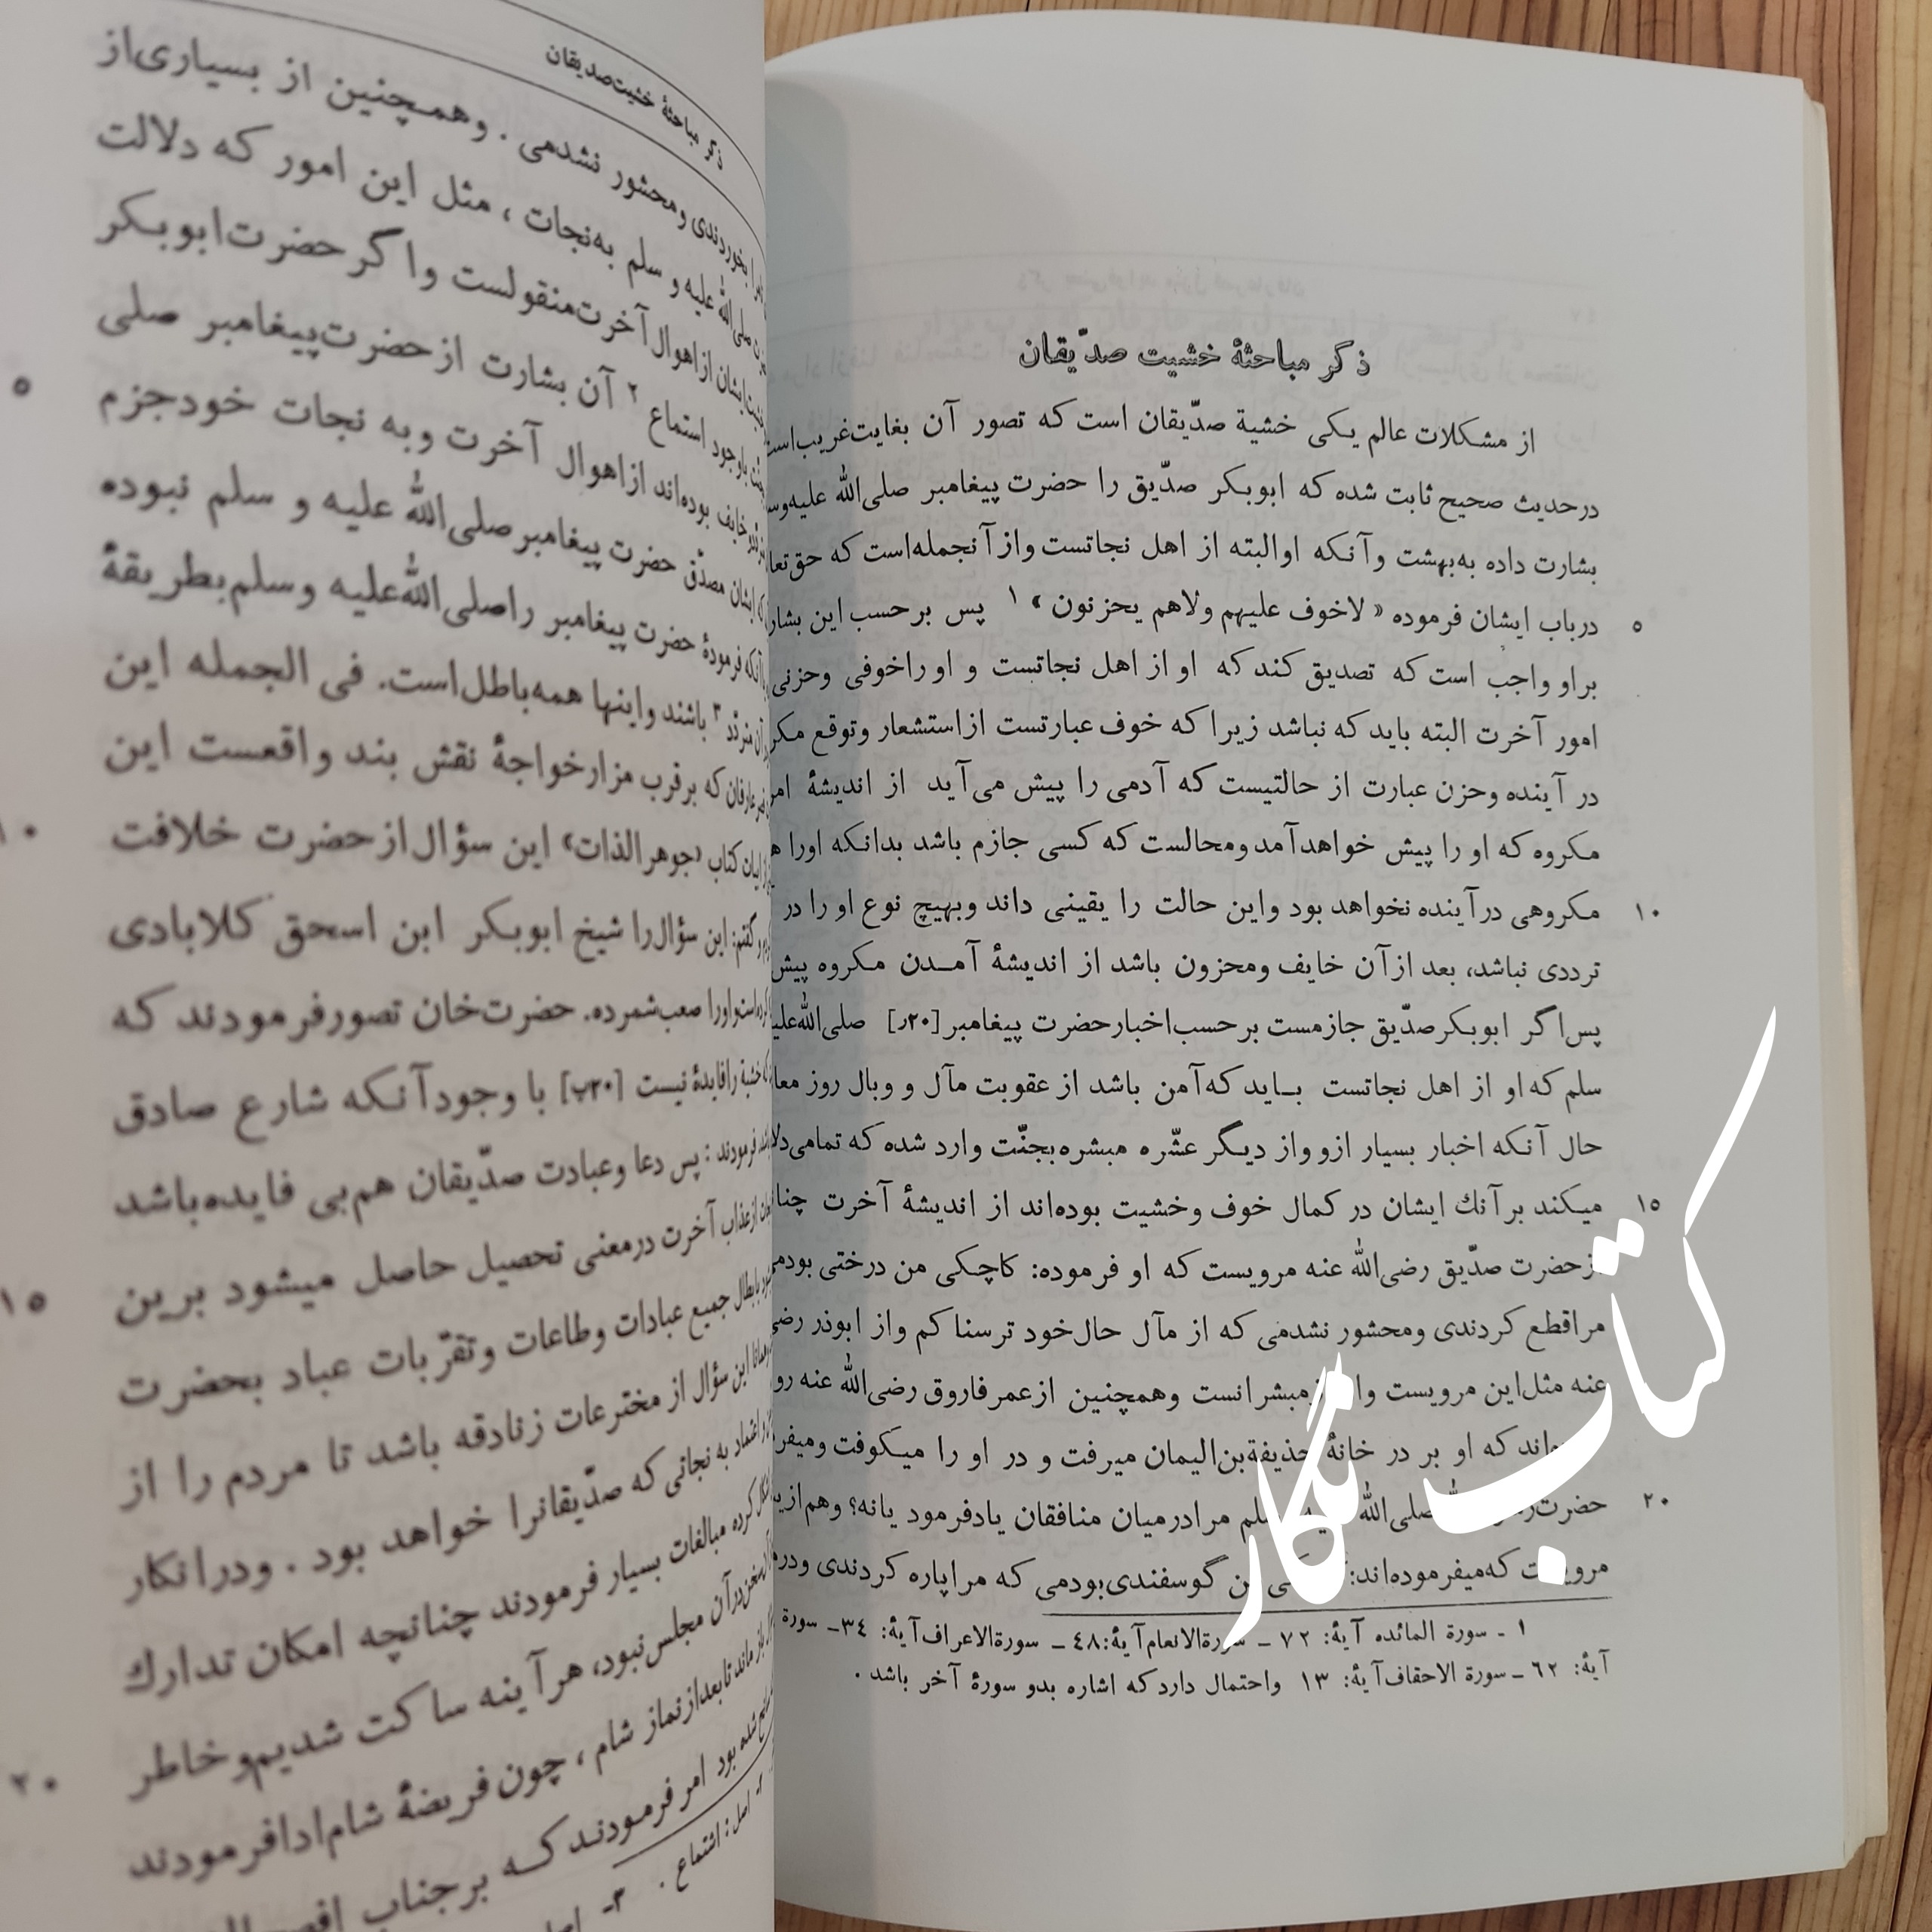 ذکر مباحثهٔ خشیت صدّیقان
از مشکلات عالم یکی خشیة صدّیقان است که تصور آن بغایت‌غریب‌است
درحدیث صحیح ثابت شده که ابوبکر صدّیق را حضرت پیغامبر صلی‌الله علیه‌وس
بشارت داده به‌بهشت وآنکه اوالبته از اهل نجاتست وازآنجمله‌است که حق‌تعا
درباب ایشان فرموده «لاخوف علیهم ولاهم یحزنون» ۱ پس برحسب این بشار
۵
براو واجب است که تصدیق کند که او از اهل نجاتست و او راخوفی وحزنی
امور آخرت البته باید که نباشد زیرا که خوف عبارتست ازاستشعار وتوقع مکر
در آینده وحزن عبارت از حالتیست که آدمی را پیش می‌آید از اندیشهٔ امر
مکروه که او را پیش خواهدآمد ومحالست که کسی جازم باشد بدانکه اورا ه
مکروهی درآینده نخواهد بود واین حالت را یقینی داند وبهیچ نوع او را در
۱۰
ترددی نباشد، بعد ازآن خایف ومحزون باشد از اندیشهٔ آمدن مکروه پیش
پس‌اگر ابوبکرصدّیق جازمست برحسب‌اخبارحضرت پیغامبر[۲۰ر] صلی‌الله‌علی
سلم که او از اهل نجاتست بـاید که‌آمن باشد از عقوبت مآل و وبال روز معا
حال آنکه اخبار بسیار ازو واز دیگر عشّره مبشره‌بجنّت وارد شده که تمامی‌دلا
میکند برآنك ایشان در کمال خوف وخشیت بوده‌اند از اندیشهٔ آخرت چنا
۱۵
زحضرت صدّیق رضی‌الله عنه مرویست که او فرموده: کاچکی من درختی بودم
مراقطع کردندی ومحشور نشدمی که از مآل حال‌خود ترسناکم واز ابوذر رضی
عنه مثل‌این مرویست وا زمبشرانست وهمچنین ازعمرفاروق رضی‌الله عنه رو
اند که او بر در خانهٔ حذیفة‌بن‌الیمان میرفت و در او را میکوفت ومیفر
حضرت صلی‌الله سلم مرادرمیان منافقان یادفرمود یانه؟ وهم‌ازی
۲۰
مرویست که‌میفرموده‌اند: من گوسفندی‌بودمی که مراپاره کردندی ودر
۱ ـ سورة المائده آیهٔ: ۷۲ ـ سورةالانعام‌آیهٔ:۴۸ ـ سورةالاعراف‌آیهٔ: ۳۴ـ سورة
آیهٔ: ۶۲ ـ سورة الاحقاف‌آیهٔ: ۱۳ واحتمال داردکه اشاره بدو سورهٔ آخر باشد .
کتاب نگار
ذکر مباحثهٔ خشیت‌صدیقان
بخوردندی ومحشور نشدمی . وهمچنین از بسیاری‌از
صلی‌الله علیه و سلم به‌نجات ، مثل این امور که دلالت
خشیت‌ایشان ازاهوال‌آخرت‌منقولست واگرحضرت‌ابوبکر
باوجود استماع ۲ آن بشارت ازحضرت‌پیغامبر صلی
خایف بوده‌اند ازاهوال آخرت وبه نجات خودجزم
۵
که ایشان مصدّق حضرت پیغامبرصلی‌الله علیه و سلم نبوده
آنکه فرمودهٔ حضرت پیغامبر راصلی‌الله‌علیه وسلم‌بطریقهٔ
آن متردّد ۳ باشند واینها همه‌باطل‌است. فی الجمله این
عارفان که برقرب مزارخواجهٔ نقش بند واقعست این
ایان کتاب «جوهرالذات» این سؤال‌ازحضرت خلافت
۱۰
و گفتم: این سؤال‌را شیخ ابوبکر ابن اسحق کلابادی
کرده‌است‌واورا صعب‌شمرده. حضرت‌خان تصورفرمودند که
که خشیة رافایدهٔ نیست [۲۰پ] با وجودآنکه شارع صادق
باشد. فرمودند : پس دعا وعبادت صدّیقان هم‌بی فایده‌باشد
ازعذاب آخرت درمعنی تحصیل حاصل میشود برین
۱۵
بابطال جمیع عبادات وطاعات وتقرّبات عباد بحضرت
همانا این سؤال از مخترعات زنادقه باشد تا مردم را از
و اعتماد به نجاتی که صدّیقانرا خواهد بود . ودرانکار
کرده مبالغات بسیار فرمودند چنانچه امکان تدارك
سخن‌درآن مجلس‌نبود، هرآینه ساکت شدیم‌وخاطر
باز ماند تابعدازنماز شام ، چون فریضهٔ شام‌ادافرمودند
۲۰
شده بود امر فرمودند کـه برجناب
۲- اصل: اشتماع .
۳- اصل